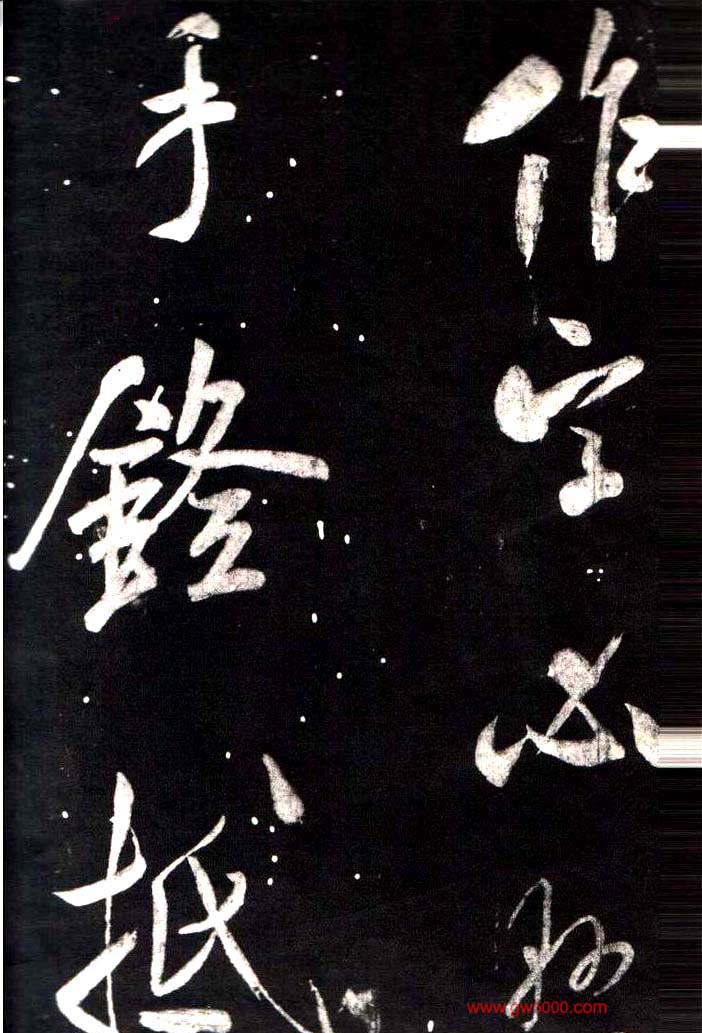 作字必
手鐙抵
www.gw5000.com